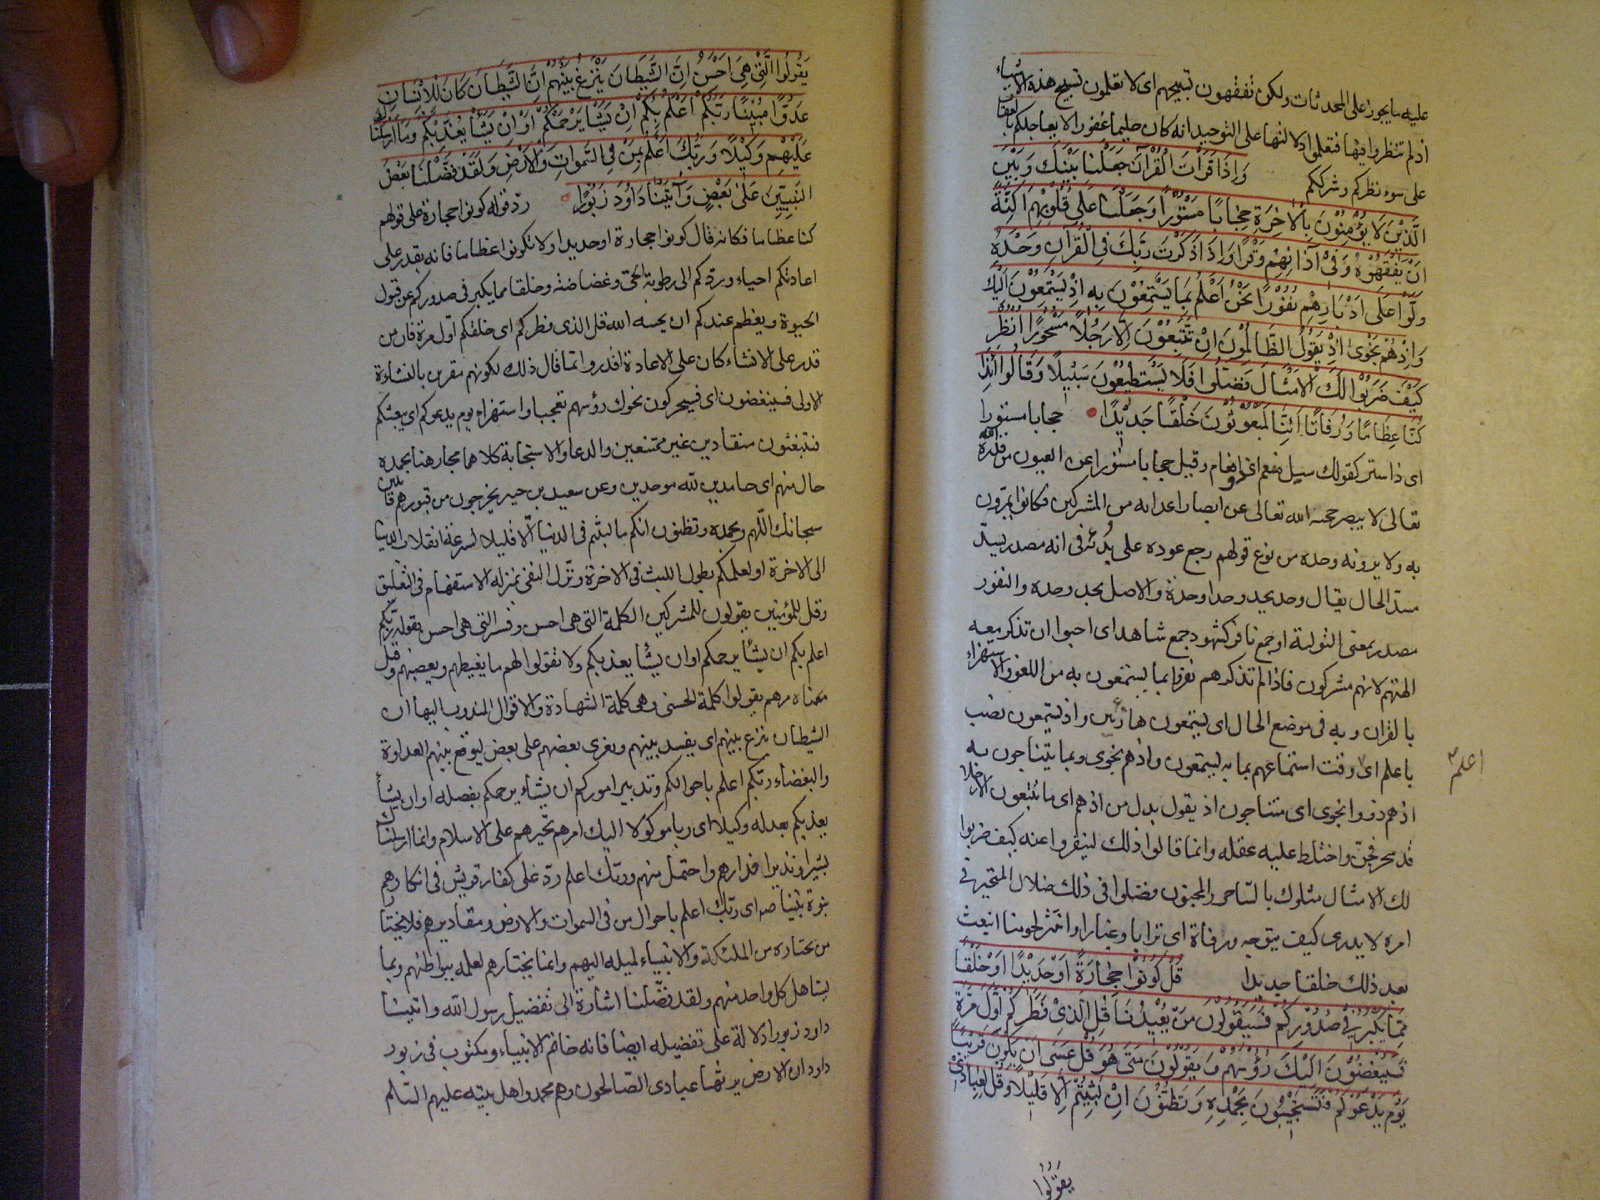 عليه ما يجوز على المحدثات ولكن تفقهون تسبيحهم اى لا تعلمون تسبيح هذه الاشياء
اذ لم تنظروا فيها فتعلموا دلالتها على التوحيد انه كان حليما غفورا لا يعاجلكم بالعقاب
على سوء نظركم وشرككم وَاِذَا قَرَأْتَ الْقُرْآنَ جَعَلْنَا بَيْنَكَ وَبَيْنَ
الَّذِينَ لَا يُؤْمِنُونَ بِالْاٰخِرَةِ حِجَابًا مَسْتُورًا وَجَعَلْنَا عَلٰى قُلُوبِهِمْ اَكِنَّةً
اَنْ يَفْقَهُوهُ وَفِى آذَانِهِمْ وَقْرًا وَاِذَا ذَكَرْتَ رَبَّكَ فِى الْقُرْآنِ وَحْدَهُ
وَلَّوْا عَلٰى اَدْبَارِهِمْ نُفُورًا نَحْنُ اَعْلَمُ بِمَا يَسْتَمِعُونَ بِهِ اِذْ يَسْتَمِعُونَ اِلَيْكَ
وَاِذْ هُمْ نَجْوٰى اِذْ يَقُولُ الظَّالِمُونَ اِنْ تَتَّبِعُونَ اِلَّا رَجُلًا مَسْحُورًا اُنْظُرْ
كَيْفَ ضَرَبُوا لَكَ الْاَمْثَالَ فَضَلُّوا فَلَا يَسْتَطِيعُونَ سَبِيلًا وَقَالُوا اَئِذَا
كُنَّا عِظَامًا وَرُفَاتًا اَئِنَّا لَمَبْعُوثُونَ خَلْقًا جَدِيدًا حجابا مستورا
اى ذا ستر كقولك سيل مفعم اى ذو افعام وقيل حجابا مستورا عن العيون من قدرة الله
تعالى لا يبصر حجبه الله تعالى عن ابصار اعدائه من المشركين فكانوا يمرّون
به ولا يرونه وحده من نوع قولهم رجع عوده على بدئه فى انه مصدر يسدّ
مسدّ الحال يقال وحد يحد وحدا وحدة والاصل يحد وحده والنفور
مصدر بمعنى التولية او جمع نافر كشهود جمع شاهد اى احبوا ان تذكر معه
الهتهم لانهم مشركون فاذا لم تذكرهم نفروا بما يستمعون به من اللغو والاستهزاء
بالقران و به فى موضع الحال اى يستمعون هازئين واذ يستمعون نصب
باعلم اى وقت استماعهم بما به يستمعون واذ هم نجوى وبما يتناجون به
اعلم
اذ هم ذوو نجوى اى متناجون اذ يقول بدل من اذ هم اى ما تتبعون الا رجلا
قد سحر فجنّ واختلط عليه عقله وانما قالوا ذلك لينفروا عنه كيف ضربوا
لك الامثال مثلوك بالساحر والمجنون فضلوا فى ذلك ضلال المتحير فى
امره لا يدرى كيف يتوجه ورفاتا اى ترابا وغبارا وانتثر لحومنا انبعث
بعد ذلك خلقا جديدا قُلْ كُونُوا حِجَارَةً اَوْ حَدِيدًا اَوْ خَلْقًا
مِمَّا يَكْبُرُ فِى صُدُورِكُمْ فَسَيَقُولُونَ مَنْ يُعِيدُنَا قُلِ الَّذِى فَطَرَكُمْ اَوَّلَ مَرَّةٍ
فَسَيُنْغِضُونَ اِلَيْكَ رُؤُسَهُمْ وَيَقُولُونَ مَتٰى هُوَ قُلْ عَسٰى اَنْ يَكُونَ قَرِيبًا
يَوْمَ يَدْعُوكُمْ فَتَسْتَجِيبُونَ بِحَمْدِهِ وَتَظُنُّونَ اِنْ لَبِثْتُمْ اِلَّا قَلِيلًا وَقُلْ لِعِبَادِى
يَقُولُوا
يَقُولُوا الَّتِى هِىَ اَحْسَنُ اِنَّ الشَّيْطَانَ يَنْزَغُ بَيْنَهُمْ اِنَّ الشَّيْطَانَ كَانَ لِلْاِنْسَانِ
عَدُوًّا مُبِينًا رَبُّكُمْ اَعْلَمُ بِكُمْ اِنْ يَشَأْ يَرْحَمْكُمْ اَوْ اِنْ يَشَأْ يُعَذِّبْكُمْ وَمَا اَرْسَلْنَاكَ
عَلَيْهِمْ وَكِيلًا وَرَبُّكَ اَعْلَمُ بِمَنْ فِى السَّمٰوَاتِ وَالْاَرْضِ وَلَقَدْ فَضَّلْنَا بَعْضَ
النَّبِيِّينَ عَلٰى بَعْضٍ وَآتَيْنَا دَاوُدَ زَبُورًا ردّ قوله كونوا حجارة على قولهم
كنا عظاما فكانه قال كونوا حجارة او حديدا ولا تكونوا عظاما فانه يقدر على
اعادتكم احياء وردّكم الى رطوبة الحىّ وغضاضته وخلقا مما يكبر فى صدوركم عن قبول
الحيوة ويعظم عندكم ان يحييه الله قل الذى فطركم اى خلقكم اوّل مرة فان من
قدر على الانشاء كان على الاعادة اقدر وانما قال ذلك لكونهم مقرين بالنشاءة
الاولى فسينغضون اى فسيحركون نحوك رؤسهم تعجبا واستهزاء يوم يدعوكم اى يبعثكم
فتبعثون منقادين غير ممتنعين والدعاء والاستجابة كلاهما مجاز هنا بحمده
حال منهم اى حامدين لله موحدين وعن سعيد بن جبير يخرجون من قبورهم قائلين
سبحانك اللّهم وبحمده وتظنون انكم ما لبثتم فى الدنيا الّا قليلا لسرعة انقلاب الدنيا
الى الاخرة او لعلمكم بطول اللبث فى الاخرة ونزّل النفى منزلة الاستفهام فى التعليق
وقل للمؤمنين يقولون للمشركين الكلمة التى هى احسن وفسر التى هى احسن بقوله ربّكم
اعلم بكم ان يشأ يرحمكم او ان يشأ يعذبكم ولا تقولوا لهم ما يغيظهم ويغضبهم وقيل
معناه مرهم يقولوا كلمة الحسنى وهى كلمة الشهادة والاقوال المندوب اليها ان
الشيطان ينزغ بينهم اى يفسد بينهم ويغرى بعضهم على بعض ليوقع بينهم العداوة
والبغضاء ربّكم اعلم باحوالكم وتدبير اموركم ان يشاء يرحمكم بفضله او ان يشأ
يعذبكم بعدله وكيلا اى ربا موكولا اليك امرهم تجبرهم على الاسلام وانما ارسلناك
بشيرا ونذيرا فدارهم واحتمل منهم وربّك اعلم ردّ على كفار قريش فى انكارهم
نبوة نبيّنا ص اى ربّك اعلم باحوال من فى السموات والارض ومقاديرهم فلا يختار
من يختاره من الملئكة والانبياء لميله اليهم وانما يختارهم لعلمه ببواطنهم وبما
يستاهل كل واحد منهم ولقد فضّلنا اشارة الى تفضيل رسول الله واتينا
داود زبورا دلالة على تفضيله ايضا فانه خاتم الانبياء ومكتوب فى زبور
داود ان الارض يرثها عبادى الصالحون وهم محمد واهل بيته عليهم السلم